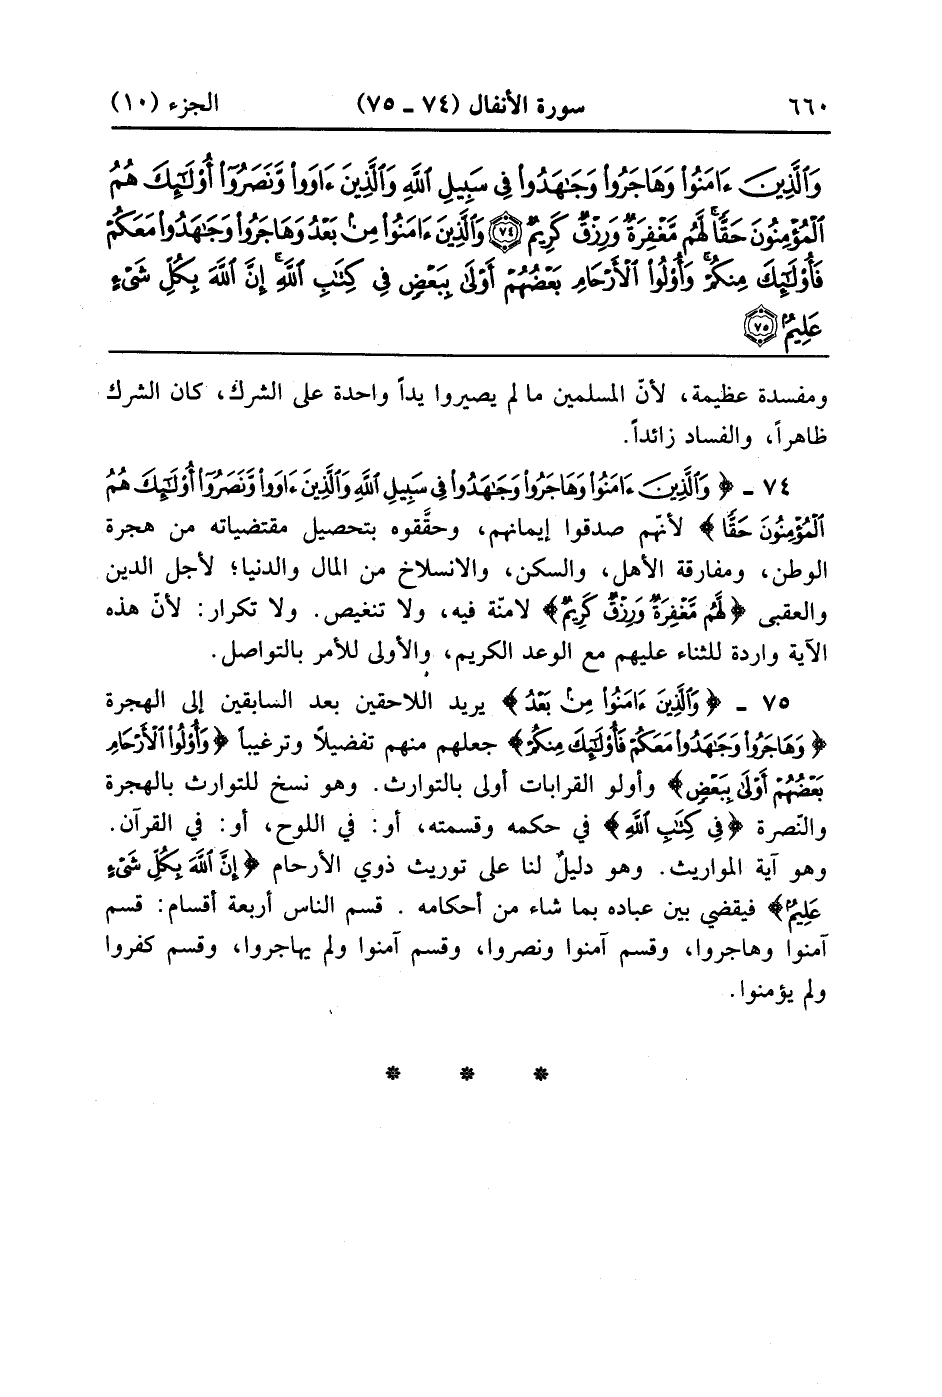 ٦٦٠ سورة الأنفال (٧٤ ـ ٧٥) الجزء (١٠)
وَٱلَّذِينَ ءَامَنُوا۟ وَهَاجَرُوا۟ وَجَٰهَدُوا۟ فِى سَبِيلِ ٱللَّهِ وَٱلَّذِينَ ءَاوَوا۟ وَّنَصَرُوٓا۟ أُو۟لَٰٓئِكَ هُمُ
ٱلْمُؤْمِنُونَ حَقًّا ۚ لَّهُم مَّغْفِرَةٌ وَرِزْقٌ كَرِيمٌ ﴿٧٤﴾ وَٱلَّذِينَ ءَامَنُوا۟ مِنۢ بَعْدُ وَهَاجَرُوا۟ وَجَٰهَدُوا۟ مَعَكُمْ
فَأُو۟لَٰٓئِكَ مِنكُمْ ۚ وَأُو۟لُوا۟ ٱلْأَرْحَامِ بَعْضُهُمْ أَوْلَىٰ بِبَعْضٍ فِى كِتَٰبِ ٱللَّهِ ۚ إِنَّ ٱللَّهَ بِكُلِّ شَىْءٍ
عَلِيمٌۢ ﴿٧٥﴾
ومفسدة عظيمة، لأنّ المسلمين ما لم يصيروا يداً واحدة على الشرك، كان الشرك
ظاهراً، والفساد زائداً.
٧٤ ـ ﴿وَٱلَّذِينَ ءَامَنُوا۟ وَهَاجَرُوا۟ وَجَٰهَدُوا۟ فِى سَبِيلِ ٱللَّهِ وَٱلَّذِينَ ءَاوَوا۟ وَّنَصَرُوٓا۟ أُو۟لَٰٓئِكَ هُمُ
ٱلْمُؤْمِنُونَ حَقًّا﴾ لأنّهم صدقوا إيمانهم، وحقَّقوه بتحصيل مقتضياته من هجرة
الوطن، ومفارقة الأهل، والسكن، والانسلاخ من المال والدنيا؛ لأجل الدين
والعقبى ﴿لَّهُم مَّغْفِرَةٌ وَرِزْقٌ كَرِيمٌ﴾ لامنّة فيه، ولا تنغيص. ولا تكرار: لأنّ هذه
الآية واردة للثناء عليهم مع الوعد الكريم، والأولى للأمر بالتواصل.
٧٥ ـ ﴿وَٱلَّذِينَ ءَامَنُوا۟ مِنۢ بَعْدُ﴾ يريد اللاحقين بعد السابقين إلى الهجرة
﴿وَهَاجَرُوا۟ وَجَٰهَدُوا۟ مَعَكُمْ فَأُو۟لَٰٓئِكَ مِنكُمْ﴾ جعلهم منهم تفضيلاً وترغيباً ﴿وَأُو۟لُوا۟ ٱلْأَرْحَامِ
بَعْضُهُمْ أَوْلَىٰ بِبَعْضٍ﴾ وأولو القرابات أولى بالتوارث. وهو نسخ للتوارث بالهجرة
والنّصرة ﴿فِى كِتَٰبِ ٱللَّهِ﴾ في حكمه وقسمته، أو: في اللوح، أو: في القرآن.
وهو آية المواريث. وهو دليلٌ لنا على توريث ذوي الأرحام ﴿إِنَّ ٱللَّهَ بِكُلِّ شَىْءٍ
عَلِيمٌۢ﴾ فيقضي بين عباده بما شاء من أحكامه . قسم الناس أربعة أقسام: قسم
آمنوا وهاجروا، وقسم آمنوا ونصروا، وقسم آمنوا ولم يهاجروا، وقسم كفروا
ولم يؤمنوا.
* * *